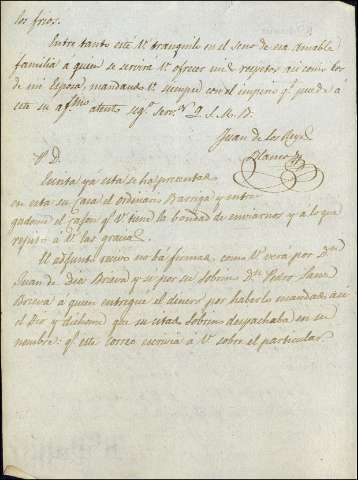 los frios.
Entre tanto esté Vd. tranquilo en el seno de esa Amable
familia á quien se servirá Vd. ofrecer mis respetos asi como los
de mi Esposa, mandando Vd. siempre con el imperio qe. puede á
este su afmo. atento segº. servr. Q. S. M. B.
Juan de los Reyes
Blanco
P. D.
Escrita yá esta se há presentado
en esta su Casa el ordinario Barriga y entre-
gadome el cajon qe. Vd. tiene la bondad de enviarnos y á lo que
repito á Vd. las gracias.
El adjunto recivo no há firmado, como Vd. verá por Dn.
Juan de Dios Brieva y si por su Sobrino Dn. Pedro
Brieva á quien entregué el dinero por haberlo mandado asi
el Tio y dichome que su citado Sobrino despachaba en su
nombre: qe. este Correo escrivia á Vd. sobre el particular.